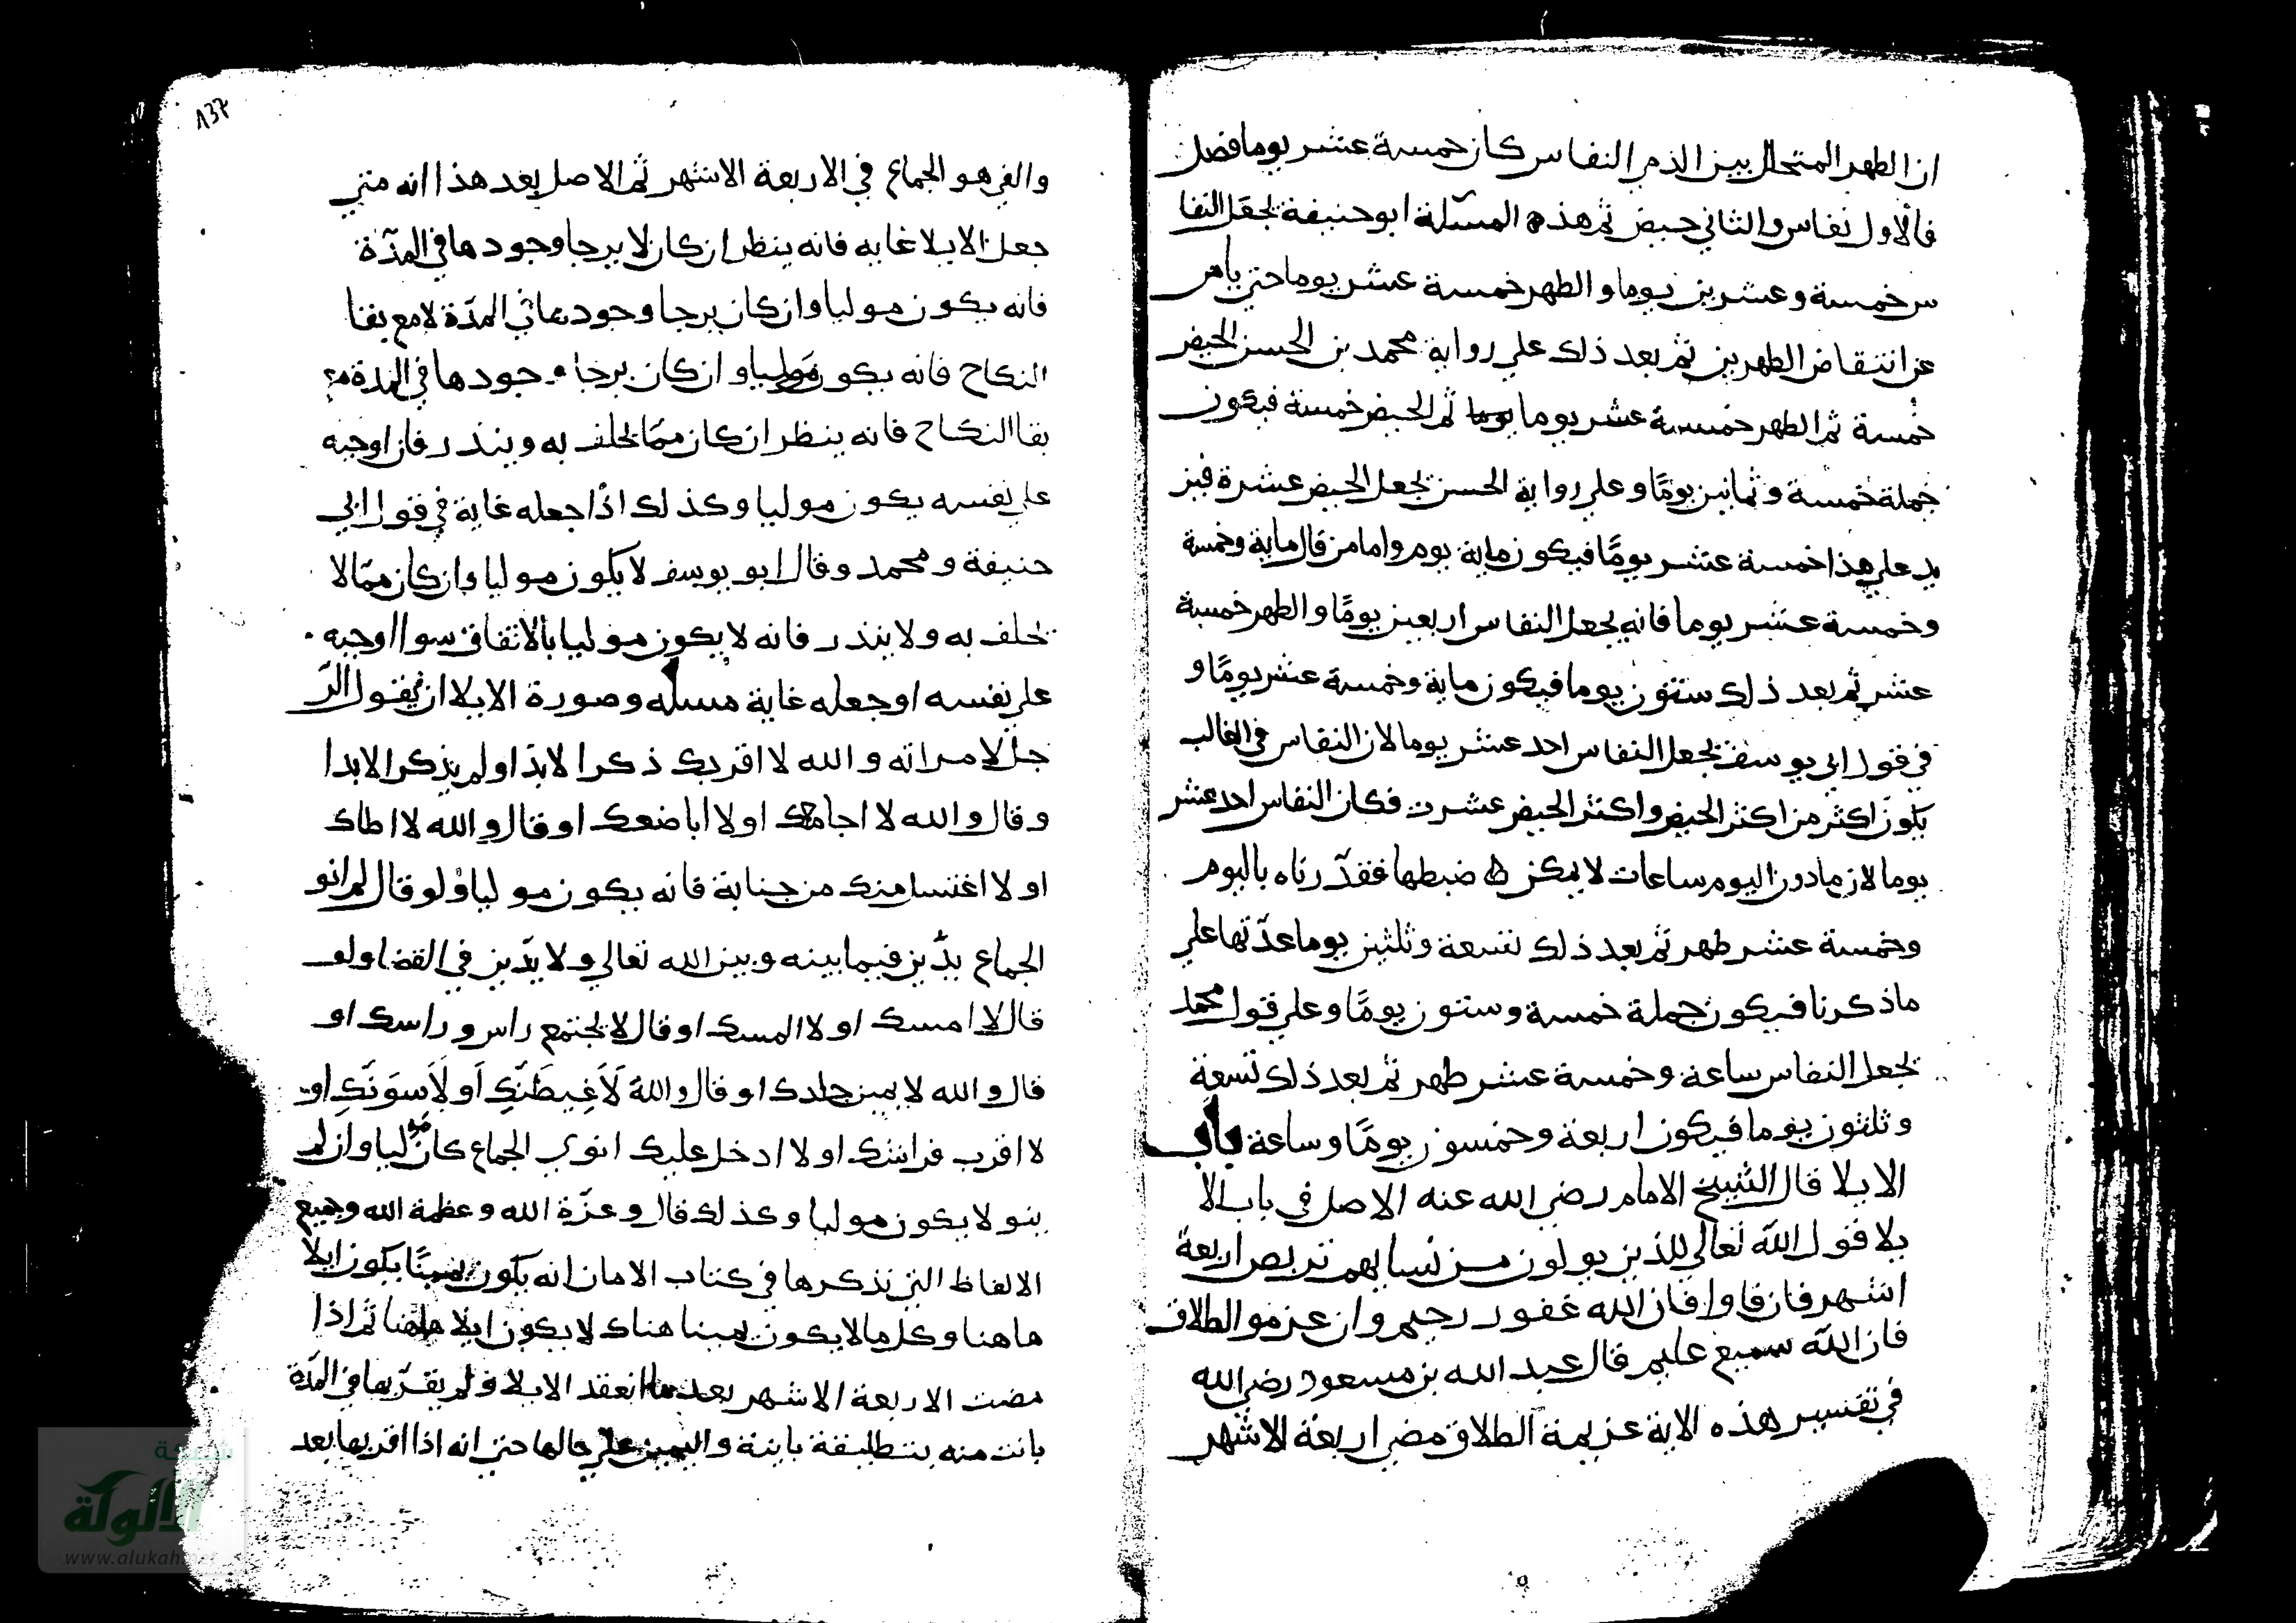 ان الطهر المتخلل بين الدم النفاس كان خمسة عشر يوما فصل
فالاول نفاس والثاني حيض ثم هذه المسئلة ابو حنيفة يجعل النفا
س خمسة وعشرين يوما والطهر خمسة عشر يوما حتي يامن
عن انتقاض الطهرين ثم بعد ذلك علي رواية محمد بن الحسن الحيض
خمسة ثم الطهر خمسة عشر يوما ثم الحيض خمسة فيكون
جملة خمسة وثمانين يومًا وعلي رواية الحسن يجعل الحيض عشرة فيز
يد علي هذا خمسة عشر يومًا فيكون ماية يوم واما من قال ماية وخمسة
وخمسة عشر يوما فانه يجعل النفاس اربعين يومًا والطهر خمسة
عشر ثم بعد ذلك ستون يوما فيكون ماية وخمسة عشر يومًا و
في قول ابي يوسف يجعل النفاس احد عشر يوما لان النفاس في الغالب
يكون اكثر من اكثر الحيض واكثر الحيض عشرت فكان النفاس احد عشر
يوما لان مادون اليوم ساعات لا يمكن ضبطها فقدّرناه باليوم
وخمسة عشر طهر ثم بعد ذلك تسعة وثلثين يوما عدّتها علي
ما ذكرنا فيكون جملة خمسة وستون يومًا وعلي قول محمد
يجعل النفاس ساعة وخمسة عشر طهر ثم بعد ذلك تسعة
وثلثون يوما فيكون اربعة وخمسون يومًا وساعة باب
الايلا قال الشيخ الامام رضي الله عنه الاصل في باب الا
يلا قول الله تعالي للذين يولون من نسايهم تربص اربعة
اشهر فان فاوا فان الله غفور رحيم وان عزموا الطلاق
فان الله سميع عليم قال عبد الله بن مسعود رضي الله
في تفسير هذه الاية عزيمة الطلاق مضي اربعة الاشهر
137
والفي هو الجماع في الاربعة الاشهر ثم الاصل بعد هذا انه متي
جعل الايلا غايه فانه ينظر ان كان لا يرجا وجودها في المدّة
فانه يكون موليا وان كان يرجا وجودها في المدّة لا مع بقا
النكاح فانه يكون موليا وان كان يرجا وجودها في المدة مع
بقا النكاح فانه ينظر ان كان ممّا يحلف به وينذر فان اوجبه
علي نفسه يكون موليا وكذلك اذا جعله غاية في قول ابي
حنيفة ومحمد وقال ابو يوسف لا يكون موليا وان كان ممّا لا
يحلف به ولا ينذر فانه لا يكون موليا بالاتفاق سوا اوجبه
علي نفسه او جعله غاية مسله وصورة الايلا ان يقول الر
جل لامراته والله لا اقربك ذكر الابدا ولم يذكر الابدا
وقال والله لا اجامعك او لا اباضعك او قال والله لا اطاك
او لا اغتسل منك من جنابة فانه يكون موليا ولو قال لم انو
الجماع يدّين فيما بينه وبين الله تعالي ولا يدّين في القضا ولو
قال لا امسك او لا المسك او قال لا يجتمع راس وراسك او
قال والله لا يمين جلدك او قال والله لَاَغِيظَنَّكِ او لَاَسوَنَّكِ او
لا اقرب فراشك او لا ادخل عليك انوي الجماع كان موليا وان لم
ينو لا يكون موليا وكذلك قال وعزّة الله وعظمة الله وجميع
الالفاظ التي نذكرها في كتاب الامان انه يكون يمينًا يكون ايلا
هاهنا وكل ما لا يكون يمينا هناك لا يكون ايلا هاهنا ثم اذا
مضت الاربعة الاشهر بعد ما انعقد الايلا ولم يقرّبها في المدّة
بانت منه بتطليقة باينة واليمين علي حالها حتي انه اذا اقربها بعد
شبكة
الألوكة
www.alukah.net